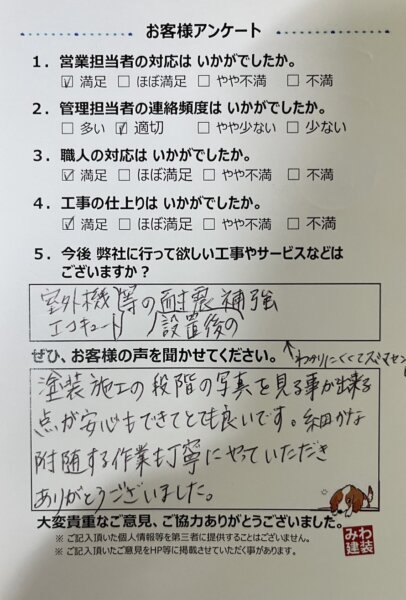 お客様アンケート
1. 営業担当者の対応は いかがでしたか。
☑ 満足 □ ほぼ満足 □ やや不満 □ 不満
2. 管理担当者の連絡頻度は いかがでしたか。
□ 多い ☑ 適切 □ やや少ない □ 少ない
3. 職人の対応は いかがでしたか。
☑ 満足 □ ほぼ満足 □ やや不満 □ 不満
4. 工事の仕上りは いかがでしたか。
☑ 満足 □ ほぼ満足 □ やや不満 □ 不満
5. 今後 弊社に行って欲しい工事やサービスなどは
ございますか？
室外機等の耐震補強
エコキュート 設置後の
ぜひ、お客様の声を聞かせてください。
わかりにくくてスミマセン
塗装施工の段階の写真を見る事が出来る
点が安心もできてとても良いです。細かな
附随する作業も丁寧にやっていただき
ありがとうございました。
大変貴重なご意見、ご協力ありがとうございました。
※ ご記入頂いた個人情報等を第三者に提供することはございません。
※ ご記入頂いたご意見をHP等に掲載させていただく事があります。
みわ
建装